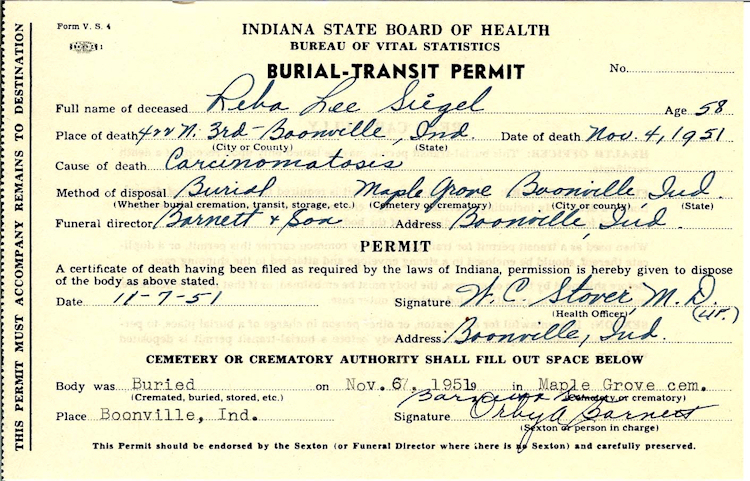 Form V. S. 4
INDIANA STATE BOARD OF HEALTH
BUREAU OF VITAL STATISTICS
BURIAL-TRANSIT PERMIT
No.
Full name of deceased Reba Lee Siegel Age 58
Place of death N. 3rd - Boonville, Ind. Date of death Nov. 4, 1951
(City or County) (State)
Cause of death Carcinomatosis
Method of disposal Burial Maple Grove Boonville, Ind.
(Whether burial cremation, transit, storage, etc.) (Cemetery or crematory) (City or county) (State)
Funeral director Barnett & Son Address Boonville, Ind.
PERMIT
A certificate of death having been filed as required by the laws of Indiana, permission is hereby given to dispose
of the body as above stated.
Date 11-7-51 Signature W. C. Stover, M. D.
(Health Officer)
Address Boonville, Ind.
CEMETERY OR CREMATORY AUTHORITY SHALL FILL OUT SPACE BELOW
Body was Buried on Nov. 67, 19519 in Maple Grove cem.
(Cremated, buried, stored, etc.) (Cemetery or crematory)
Place Boonville, Ind. Signature Orby A Barnett
(Sexton or person in charge)
This Permit should be endorsed by the Sexton (or Funeral Director where there is no Sexton) and carefully preserved.
THIS PERMIT MUST ACCOMPANY REMAINS TO DESTINATION